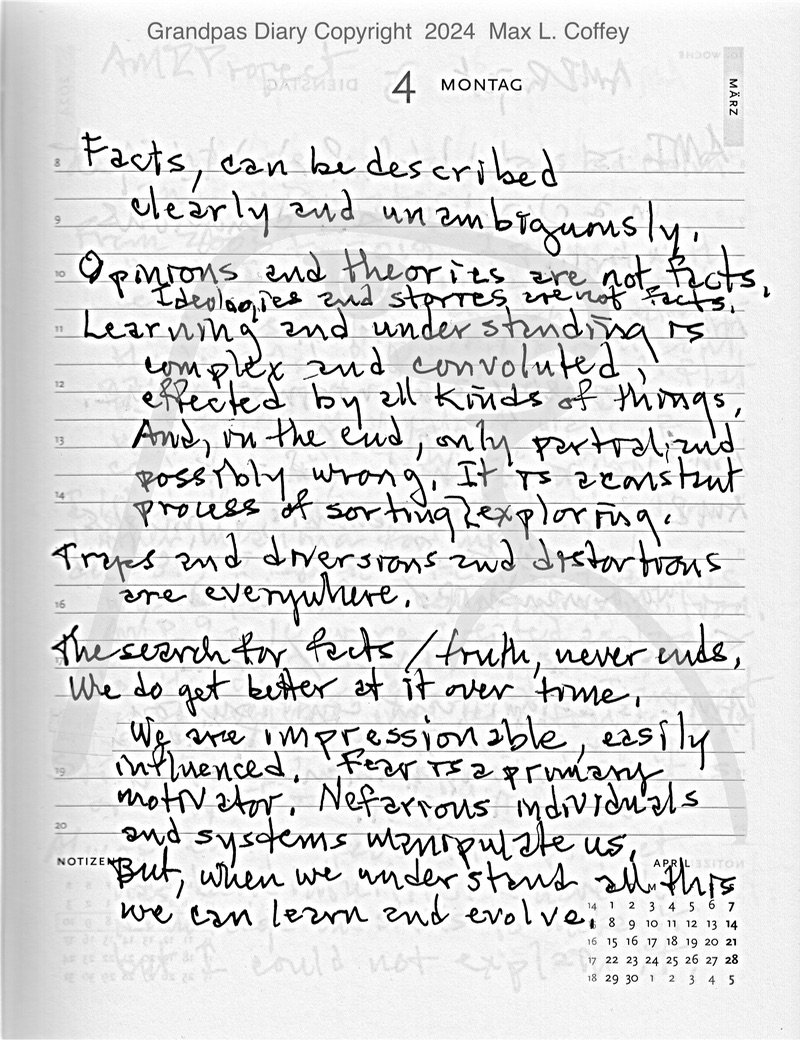 Grandpas Diary Copyright 2024 Max L. Coffey
4 MONTAG
MÄRZ
8 Facts, can be described
9 clearly and unambiguously.
10 Opinions and theories are not facts.
Ideologies and stories are not facts.
11 Learning and understanding is
complex and convoluted,
12 effected by all kinds of things,
13 And, in the end, only partial, and
possibly wrong. It is a constant
14 process of sorting exploring.
Traps and diversions and distortions
16 are everywhere.
The search for facts / truth, never ends.
We do get better at it over time.
We are impressionable, easily
19 influenced. Fear is a primary
motivator. Nefarious individuals
20 and systems manipulate us.
NOTIZEN But, when we understand all this
we can learn and evolve.
APRIL
M
14 1 2 3 4 5 6 7
8 9 10 11 12 13 14
16 15 16 17 18 19 20 21
17 22 23 24 25 26 27 28
18 29 30 1 2 3 4 5